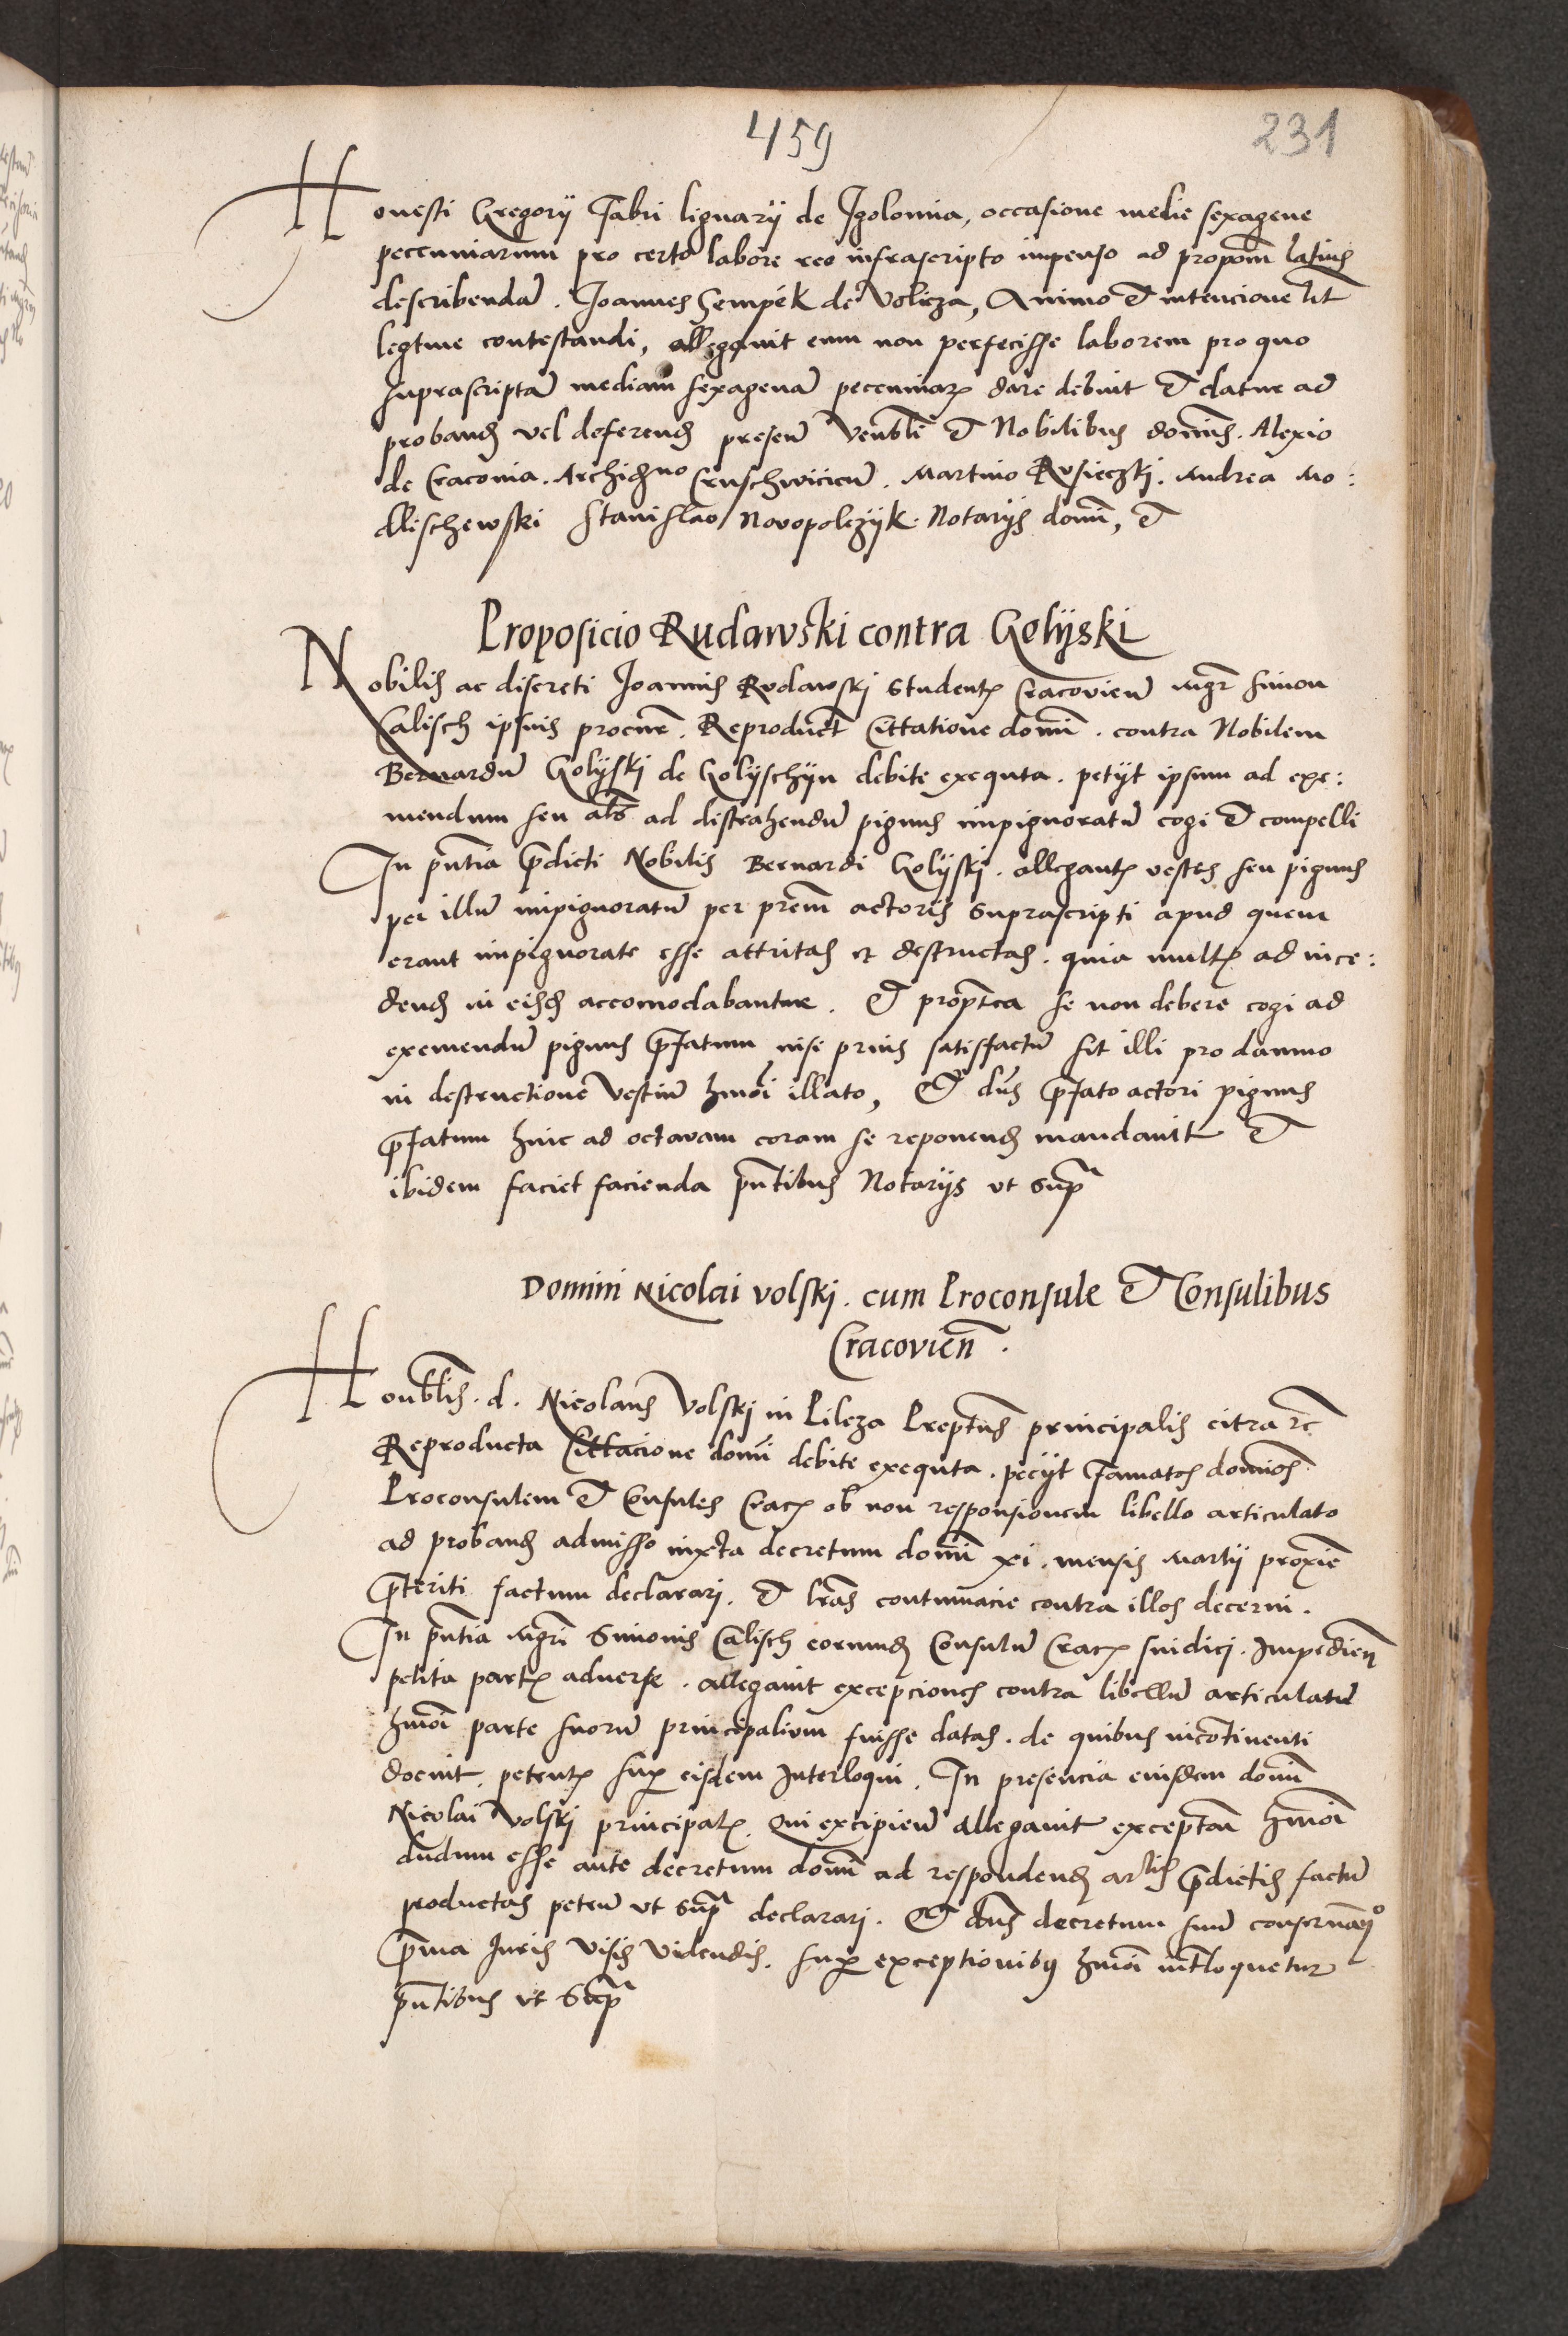 459
231
Honesti Gregorij Fabri lignarij de Jgolomia, occasione medie sexagene
peccuniarum pro certo labore reo infrascripto impenso ad propom̄ latius
describendā. Joannes Sempek de Volicza, Animo & intencione lit̄
legtme contestandi, allegauit eum non perfecisse laborem pro quo
suprascriptā mediam sexagenā peccuniarꝫ dare debuit & datur ad
proband vel deferend presen̄ Venbli & Nobilibus domīs. Alexio
de Craconia. Archidno Cruschwicien̄. Martino Rusieczki. Andrea Mo:
dlischewski Stanislao Novopolczyk. Notarijs domī, &
Proposicio Rudawski contra Golijski
Nobilis ac discreti Joannis Rudawski Studentꝭ Cracovien̄ Mgr̄ Simon
Calisch ipsius procur̄. Reproduct̄ Cittatione domī. contra Nobilem
Bernardū Golijski de Golijschijn debite exequta. petijt ipsum ad exe:
mendum seu als̄ ad distrahendū pignus impignoratū cogi & compelli
In pn̄tia p̄dicti Nobilis Bernardi Golijski. allegantꝭ vestes seu pignus
per illū impignoratū per prem̄ actoris suprascripti apud quem
erant impignorate esse attritas et destructas. quia multꝭ ad ince:
dend in eisd accomodabantur. & propt̄ea se non debere cogi ad
exemendū pignus p̄fatum nisi prius satisfactū sit illi pro damno
in destructione vestiū hmōi illato, & dūs p̄fato actori pignus
p̄fatum hinc ad octavam coram se reponend mandauit &
ibidem faciet facienda pn̄tibus Notarijs vt supᵃ
Domini Nicolai volskj. cum Proconsule & Consulibus
Cracovien̄.
Honblis. d. Nicolaus Volskj in Pilcza Preptus principalis citra rc̄
Reproducta Cittacione domī debite exequta. pecijt Famatos domīos
Proconsulem & Consules Cracꝭ ob non responsionem libello articulato
ad proband admisso iuxta decretum domī xi. mensis Martij proxīe
p̄teriti factum declarari. & lrās contumacie contra illos decerni.
In pn̄tia Mgrī Simonis Calisch eorund Consulū Cracꝭ sindici. Impedien̄
petita partꝭ aduerse. allegauit excepciones contra libellū articulatū
hmōi parte suorū principaliom fuisse datas. de quibus incōtinenti
docuit. petentꝭ sup eisdem Interloqui. In presencia eiusdem domī
Nicolai Volskj principalꝭ. Qui excipien̄ allegauit except̄ōēs hmōi
dudum esse ante decretum domī ad respondend artlis p̄dictis factū
productas peten̄ vt supᵃ declarari. & dn̄s decretum suū conseruādo
p̄ma Juris visis videndis. sup exceptionibꝰ hmōi int̄loquetur
pn̄tibus vt Supᵃ